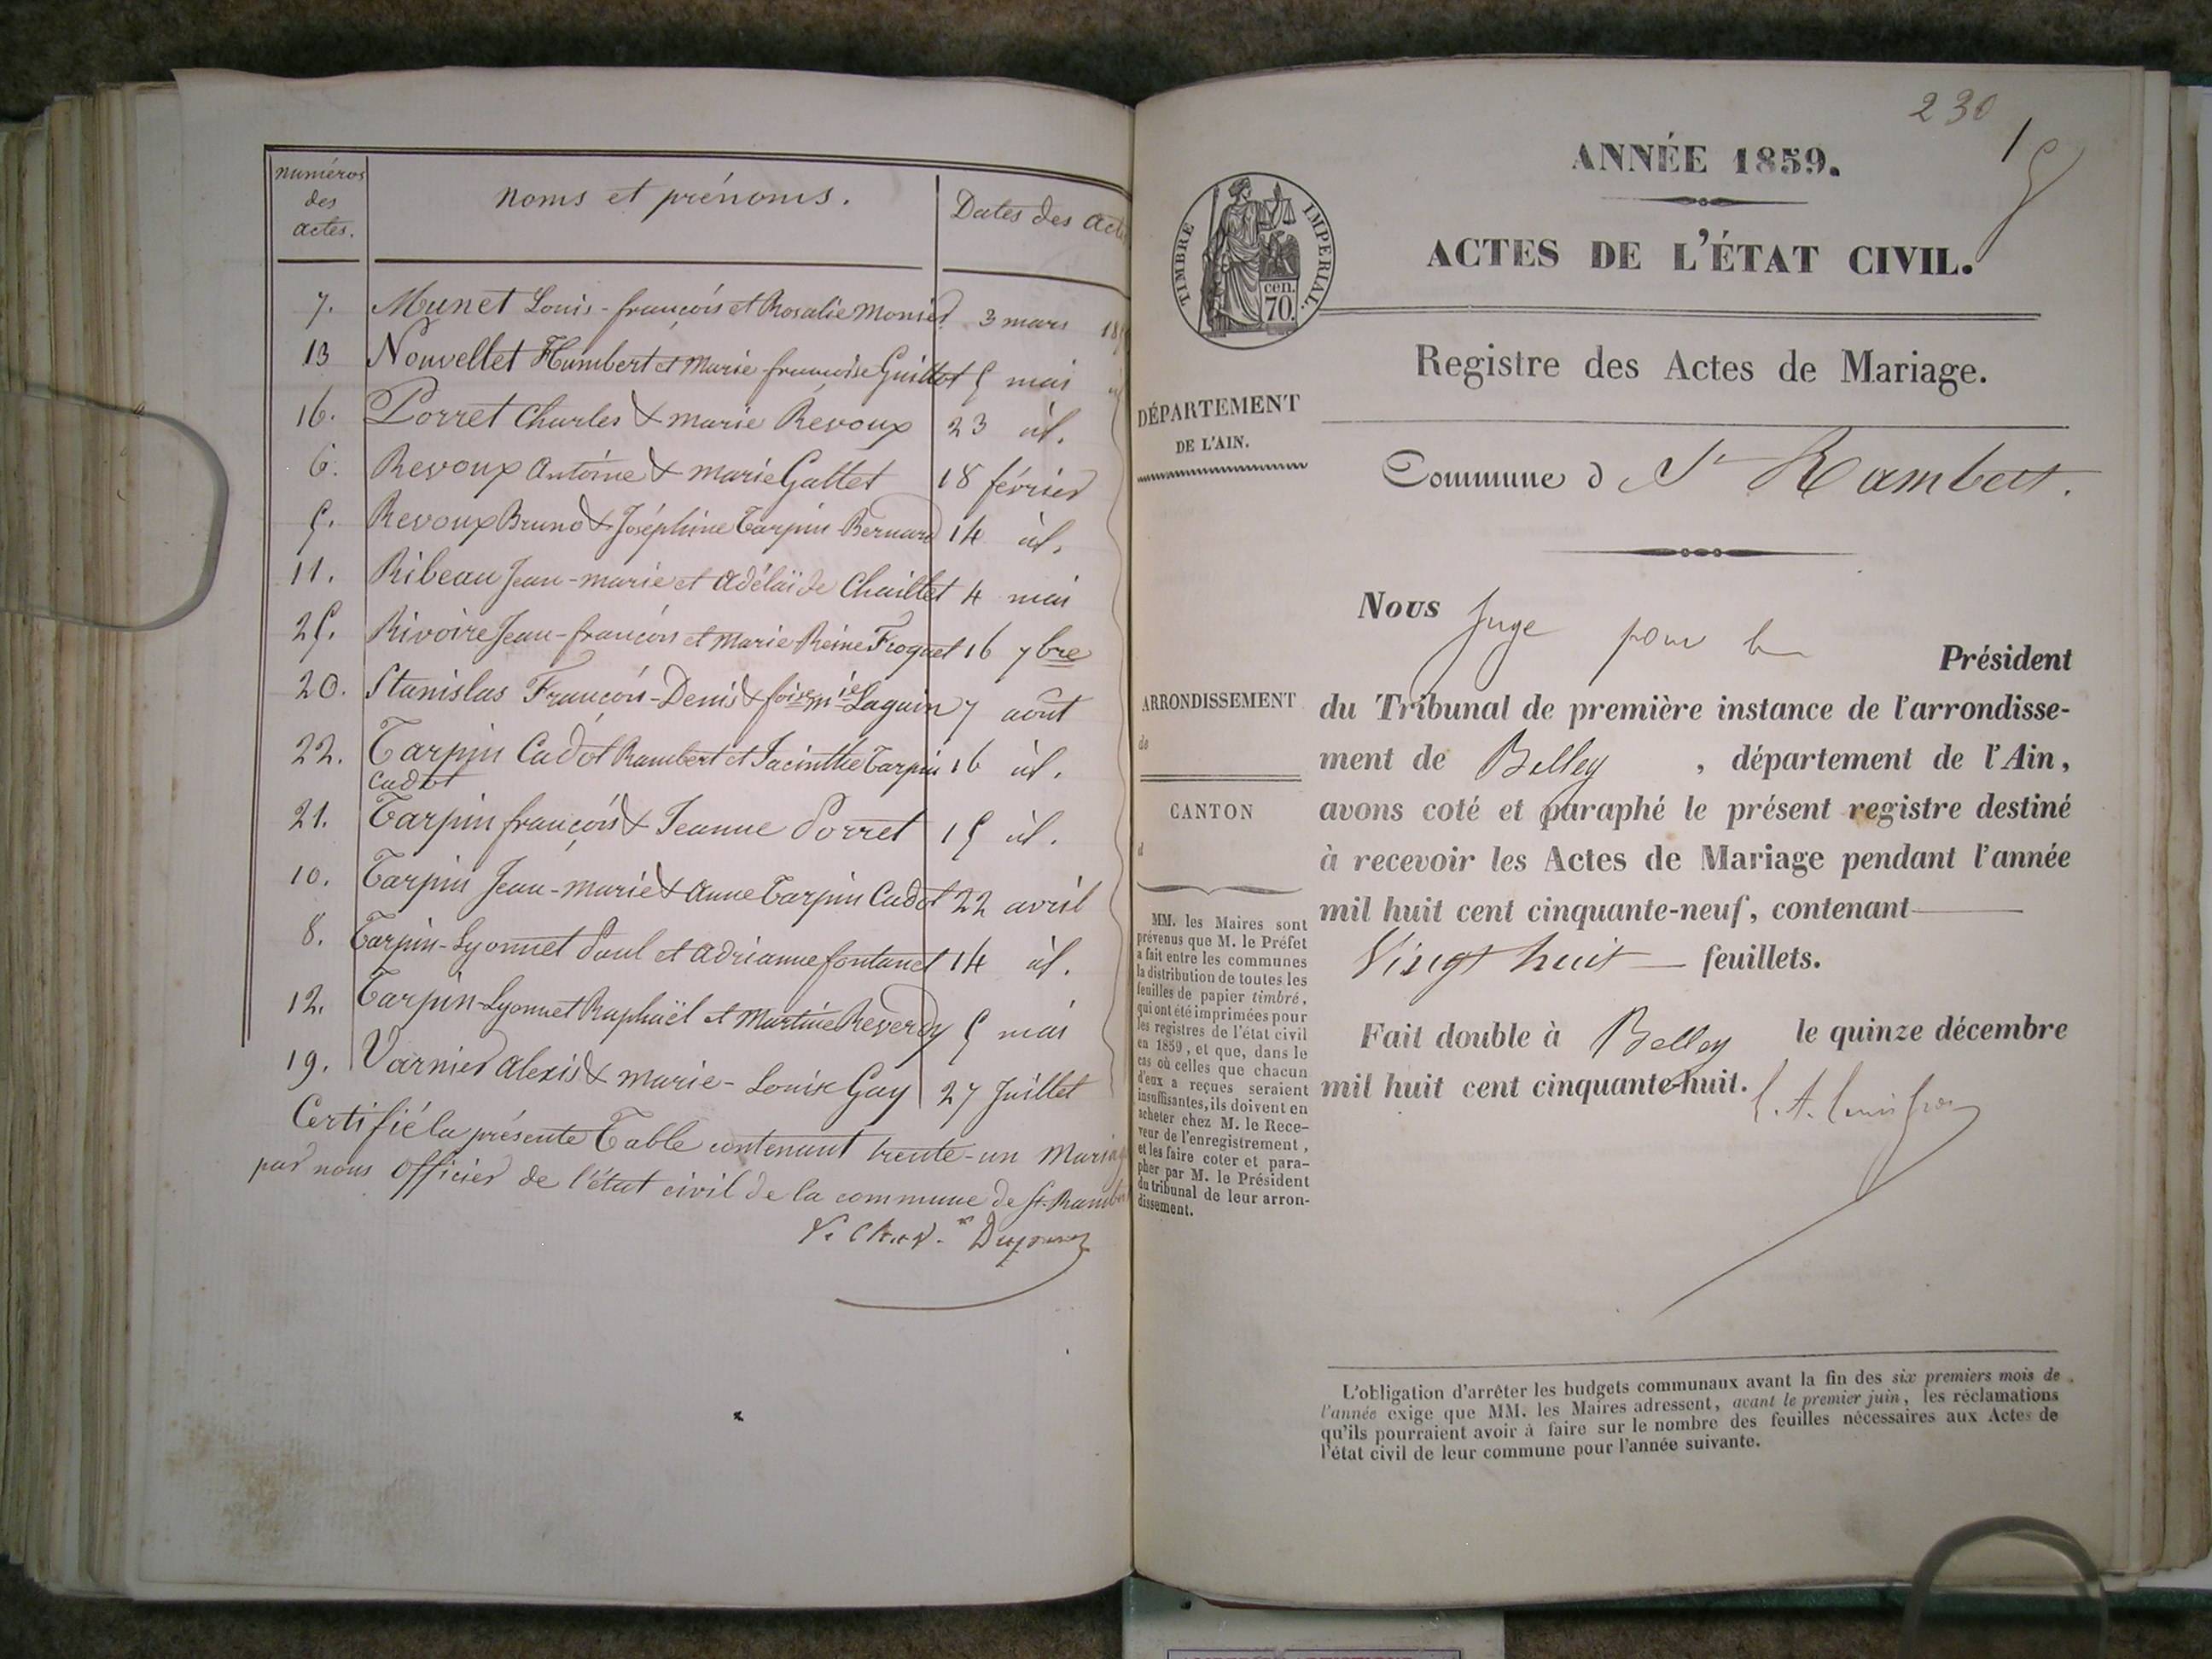 numéros des actes.
noms et prénoms.
Dates des Act
7. Munet Louis-françois et Rosalie Monier 3 mars 18
13 Nouvellet Humbert et Marie-françoise Guillot 5 mai
16. Porret Charles & marie Revoux 23 id.
6. Revoux Antoine & marie Gallet 18 février
5. Revoux Bruno & Joséphine Tarpin-Bernard 14 id.
11. Ribeau Jean-marie et Adélaïde Chaillet 4 mai
25. Rivoire Jean-françois et Marie-Reine Froquet 16 7bre
20. Stanislas François-Denis & foise mie Laguin 7 août
22. Tarpin Cadot Rambert et Jacinthe Tarpin 16 id.
Cadot
21. Tarpin françois & Jeanne Porret 15 id.
10. Tarpin Jean-marie & Anne Tarpin Cadot 22 avril
8. Tarpin-Lyonnet Paul et Adrianne fontanel 14 id.
12. Tarpin-Lyonnet Raphaël et Martine Reverdy 5 mai
19. Varnier Alexis & marie-Louise Gay 27 Juillet
Certifié la présente Table contenant trente-un Mariag
par nous Officier de l'état civil de la commune de St-Ramb
230
1
ANNÉE 1859.
ACTES DE L'ÉTAT CIVIL.
TIMBRE IMPERIAL.
cen.
70.
Registre des Actes de Mariage.
DÉPARTEMENT
DE L'AIN.
Commune d St Rambert.
Nous Juge pour le Président
ARRONDISSEMENT
de
CANTON
d
du Tribunal de première instance de l'arrondisse-
ment de Belley , département de l'Ain,
avons coté et paraphé le présent registre destiné
à recevoir les Actes de Mariage pendant l'année
mil huit cent cinquante-neuf, contenant
Vingt huit feuillets.
Fait double à Belley le quinze décembre
mil huit cent cinquante-huit.
MM. les Maires sont
prévenus que M. le Préfet
a fait entre les communes
la distribution de toutes les
feuilles de papier timbré,
qui ont été imprimées pour
les registres de l'état civil
en 1859, et que, dans le
cas où celles que chacun
d'eux a reçues seraient
insuffisantes, ils doivent en
acheter chez M. le Rece-
veur de l'enregistrement,
et les faire coter et para-
pher par M. le Président
du tribunal de leur arron-
dissement.
L'obligation d'arrêter les budgets communaux avant la fin des six premiers mois de
l'année exige que MM. les Maires adressent, avant le premier juin, les réclamations
qu'ils pourraient avoir à faire sur le nombre des feuilles nécessaires aux Actes de
l'état civil de leur commune pour l'année suivante.